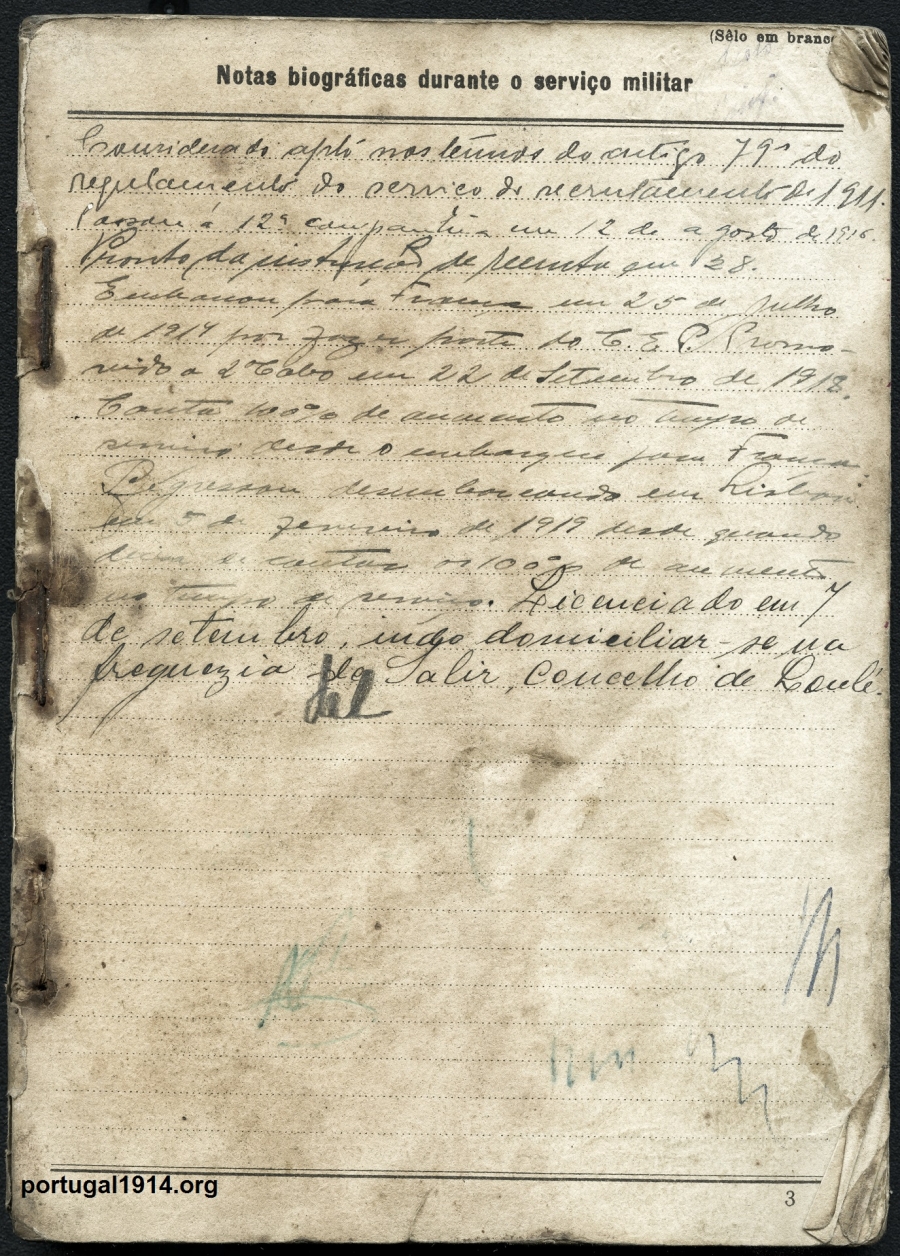 (Sêlo em branco
Notas biográficas durante o serviço militar
Considerado apto nos têrmos do artigo 79º do
regulamento do serviço de recrutamento de 1911.
Passou á 12ª companhia em 12 de agosto de 1916.
Pronto da instrução de recruta em 28.
Embarcou para França em 25 de julho
de 1917 por fazer parte do C. E. P. Promo-
vido a 2º Cabo em 22 de Setembro de 1918.
Conta 100% de aumento no tempo de
serviço desde o embarque para França
Regressou desembarcando em Lisboa
em 5 de fevereiro de 1919 desde quando
deixa de contar os 100% de aumento
no tempo de serviço. Licenciado em 7
de setembro, indo domiciliar-se na
freguezia de Salir, concelho de Loulé.
portugal1914.org
3